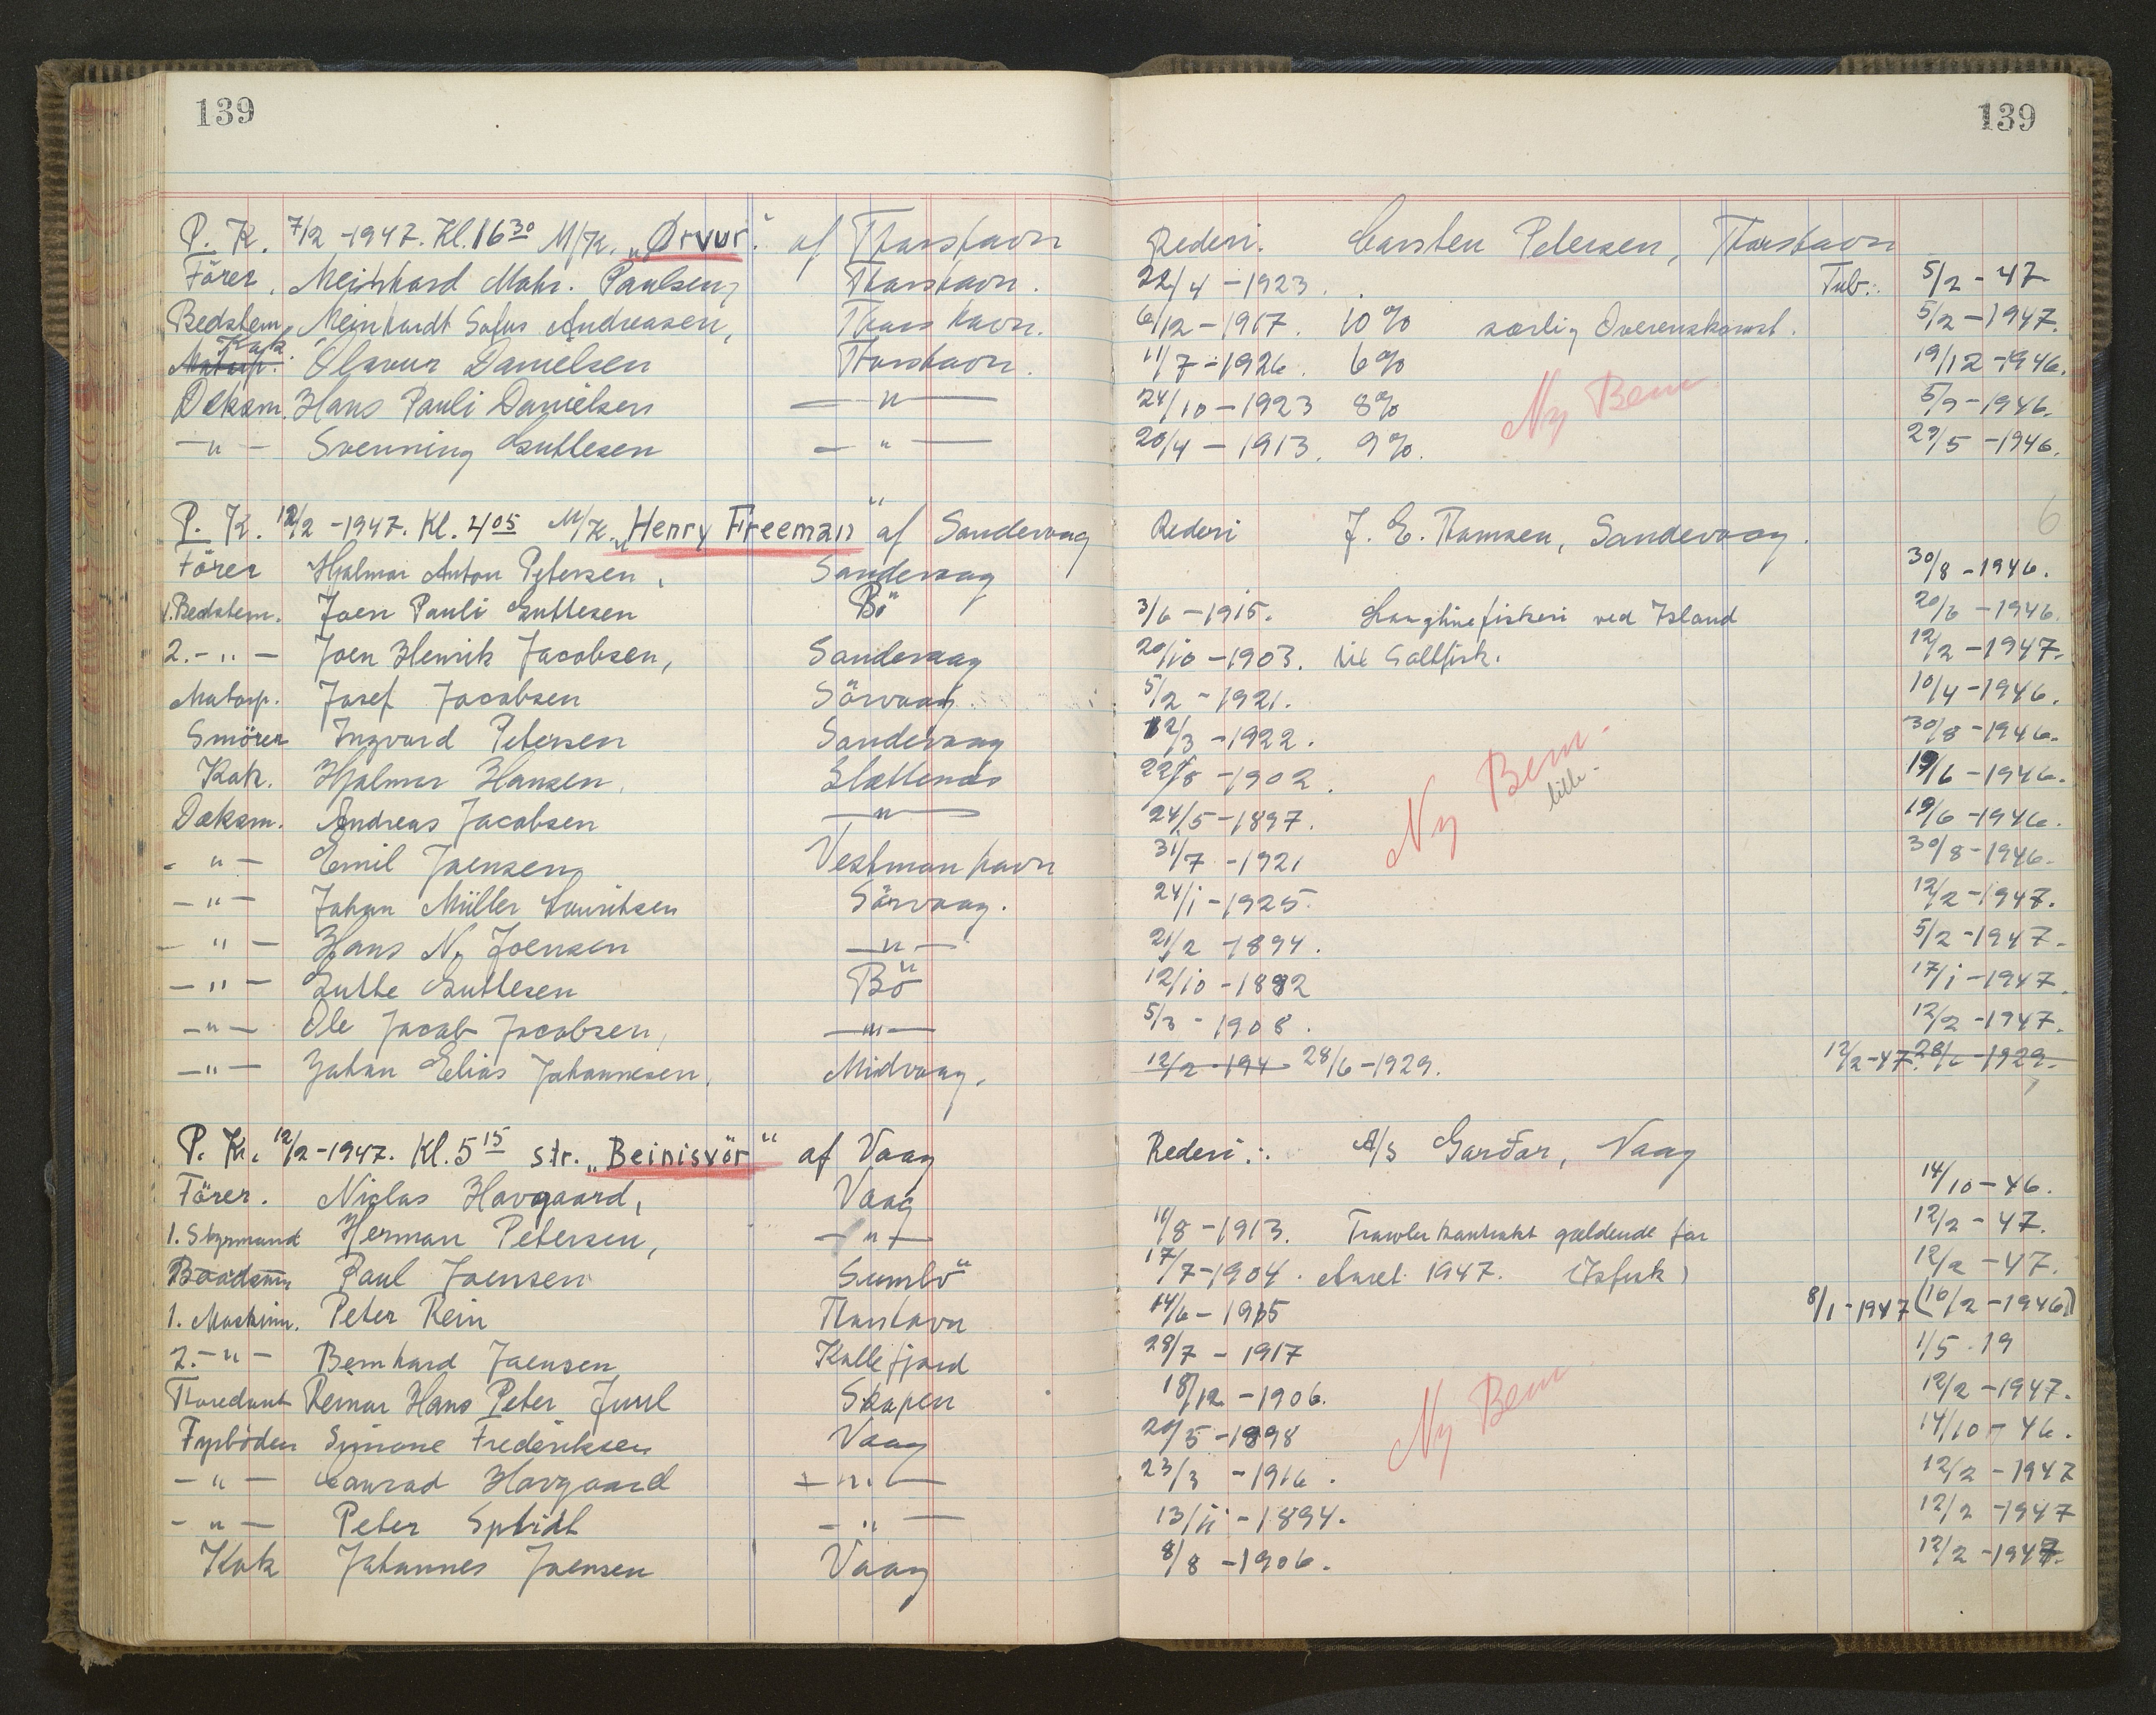 139 139
P. K. 7/2 - 1947. Kl. 16 30 M/K. „Ørvur“ af Thorshavn Rederi. Carsten Petersen, Thorshavn
Förer. Meinhard Mohr. Paulsen, Thorshavn. 22/4 - 1923. Tub.: 5/2 - 47
Bedstem. Meinhardt Sofus Andreasen, Thorshavn. 6/12 - 1917. 10% særlig Overenskomst. 5/2 - 1947.
Matorp. Kok. Olavur Danielsen Thorshavn. 11/7 - 1926. 6% 19/12 - 1946.
Deksm. Hans Pauli Danielsen — " — 24/10 - 1923 8% Ny Bem 5/9 - 1946.
— " — Svenning Guttesen — " — 20/4 - 1913. 9%. 29/5 - 1946.
P. K. 12/2 - 1947. Kl. 4 05 M/K. „Henry Freeman“ af Sandevaag Rederi J. E. Thomsen, Sandevaag. 6
Förer Hjalmar Anton Petersen, Sandevaag 30/8 - 1946.
1. Bedstem. Joen Pauli Guttesen Bö 3/6 - 1915. Langlinefiskeri ved Island 20/6 - 1946.
2. - " — Joen Henrik Jacobsen, Sandevaag 20/10 - 1903. til Saltfisk. 12/2 - 1947.
Matorp. Josef Jacobsen Sörvaag. 5/2 - 1921. 10/4 - 1946.
Smörer Ingvard Petersen Sandevaag 12/3 - 1922. 30/8 - 1946.
Kok. Hjalmar Hansen, Slættenæs 22/8 - 1902. Ny Bem. 19/6 - 1946.
Deksm. Andreas Jacobsen — " — 24/5 - 1897. 19/6 - 1946.
- " — Emil Joensen Vestmanhavn 31/7 - 1921 30/8 - 1946.
— " — Johan Müller Lauritsen Sörvaag. 24/1 - 1925. 12/2 - 1947.
— " — Hans N. Joensen — " — 21/2 - 1894. 5/2 - 1947.
— " — Gutte Guttesen Bö 12/10 - 1882 17/1 - 1947.
— " — Ole Jacob Jacobsen, — " — 5/3 - 1908. 12/2 - 1947.
— " — Johan Elias Johannesen, Midvaag. 12/2 - 194 28/6 - 1929. 12/2 - 47. 28/6 - 1929.
P. K. 12/2 - 1947. Kl. 5 15 str. „Beinisvör“ af Vaag Rederi.: A/S Garðar, Vaag
Förer. Niclas Hovgaard, Vaag 14/10 - 46.
1. Styrmand Herman Petersen, — " — 11/8 - 1913. Trawlerkontrakt gældende for 12/2 - 47.
Baadsm Paul Joensen Sumbö 17/7 - 1904. Aaret 1947. (Isfisk) 12/2 - 47.
1. Maskinm. Peter Rein Thorshavn 14/6 - 1915 8/1 - 1947 (16/2 - 1946)
2. - " — Bernhard Joensen Kollefjord 28/7 - 1917 1/5 . 19
Reinar Hans Peter Juul Skapen 18/12 - 1906. Ny Bem 12/2 - 1947.
Fyrböder Simone Frederiksen Vaag 29/5 - 1898 14/10 - 46.
— " — Conrad Hovgaard — " — 23/3 - 1916. 12/2 - 1947
- " — Peter Splidt — " — 13/11 - 1894. 12/2 - 1947
Kok Johannes Joensen Vaag 8/8 - 1906. 12/2 - 1947.